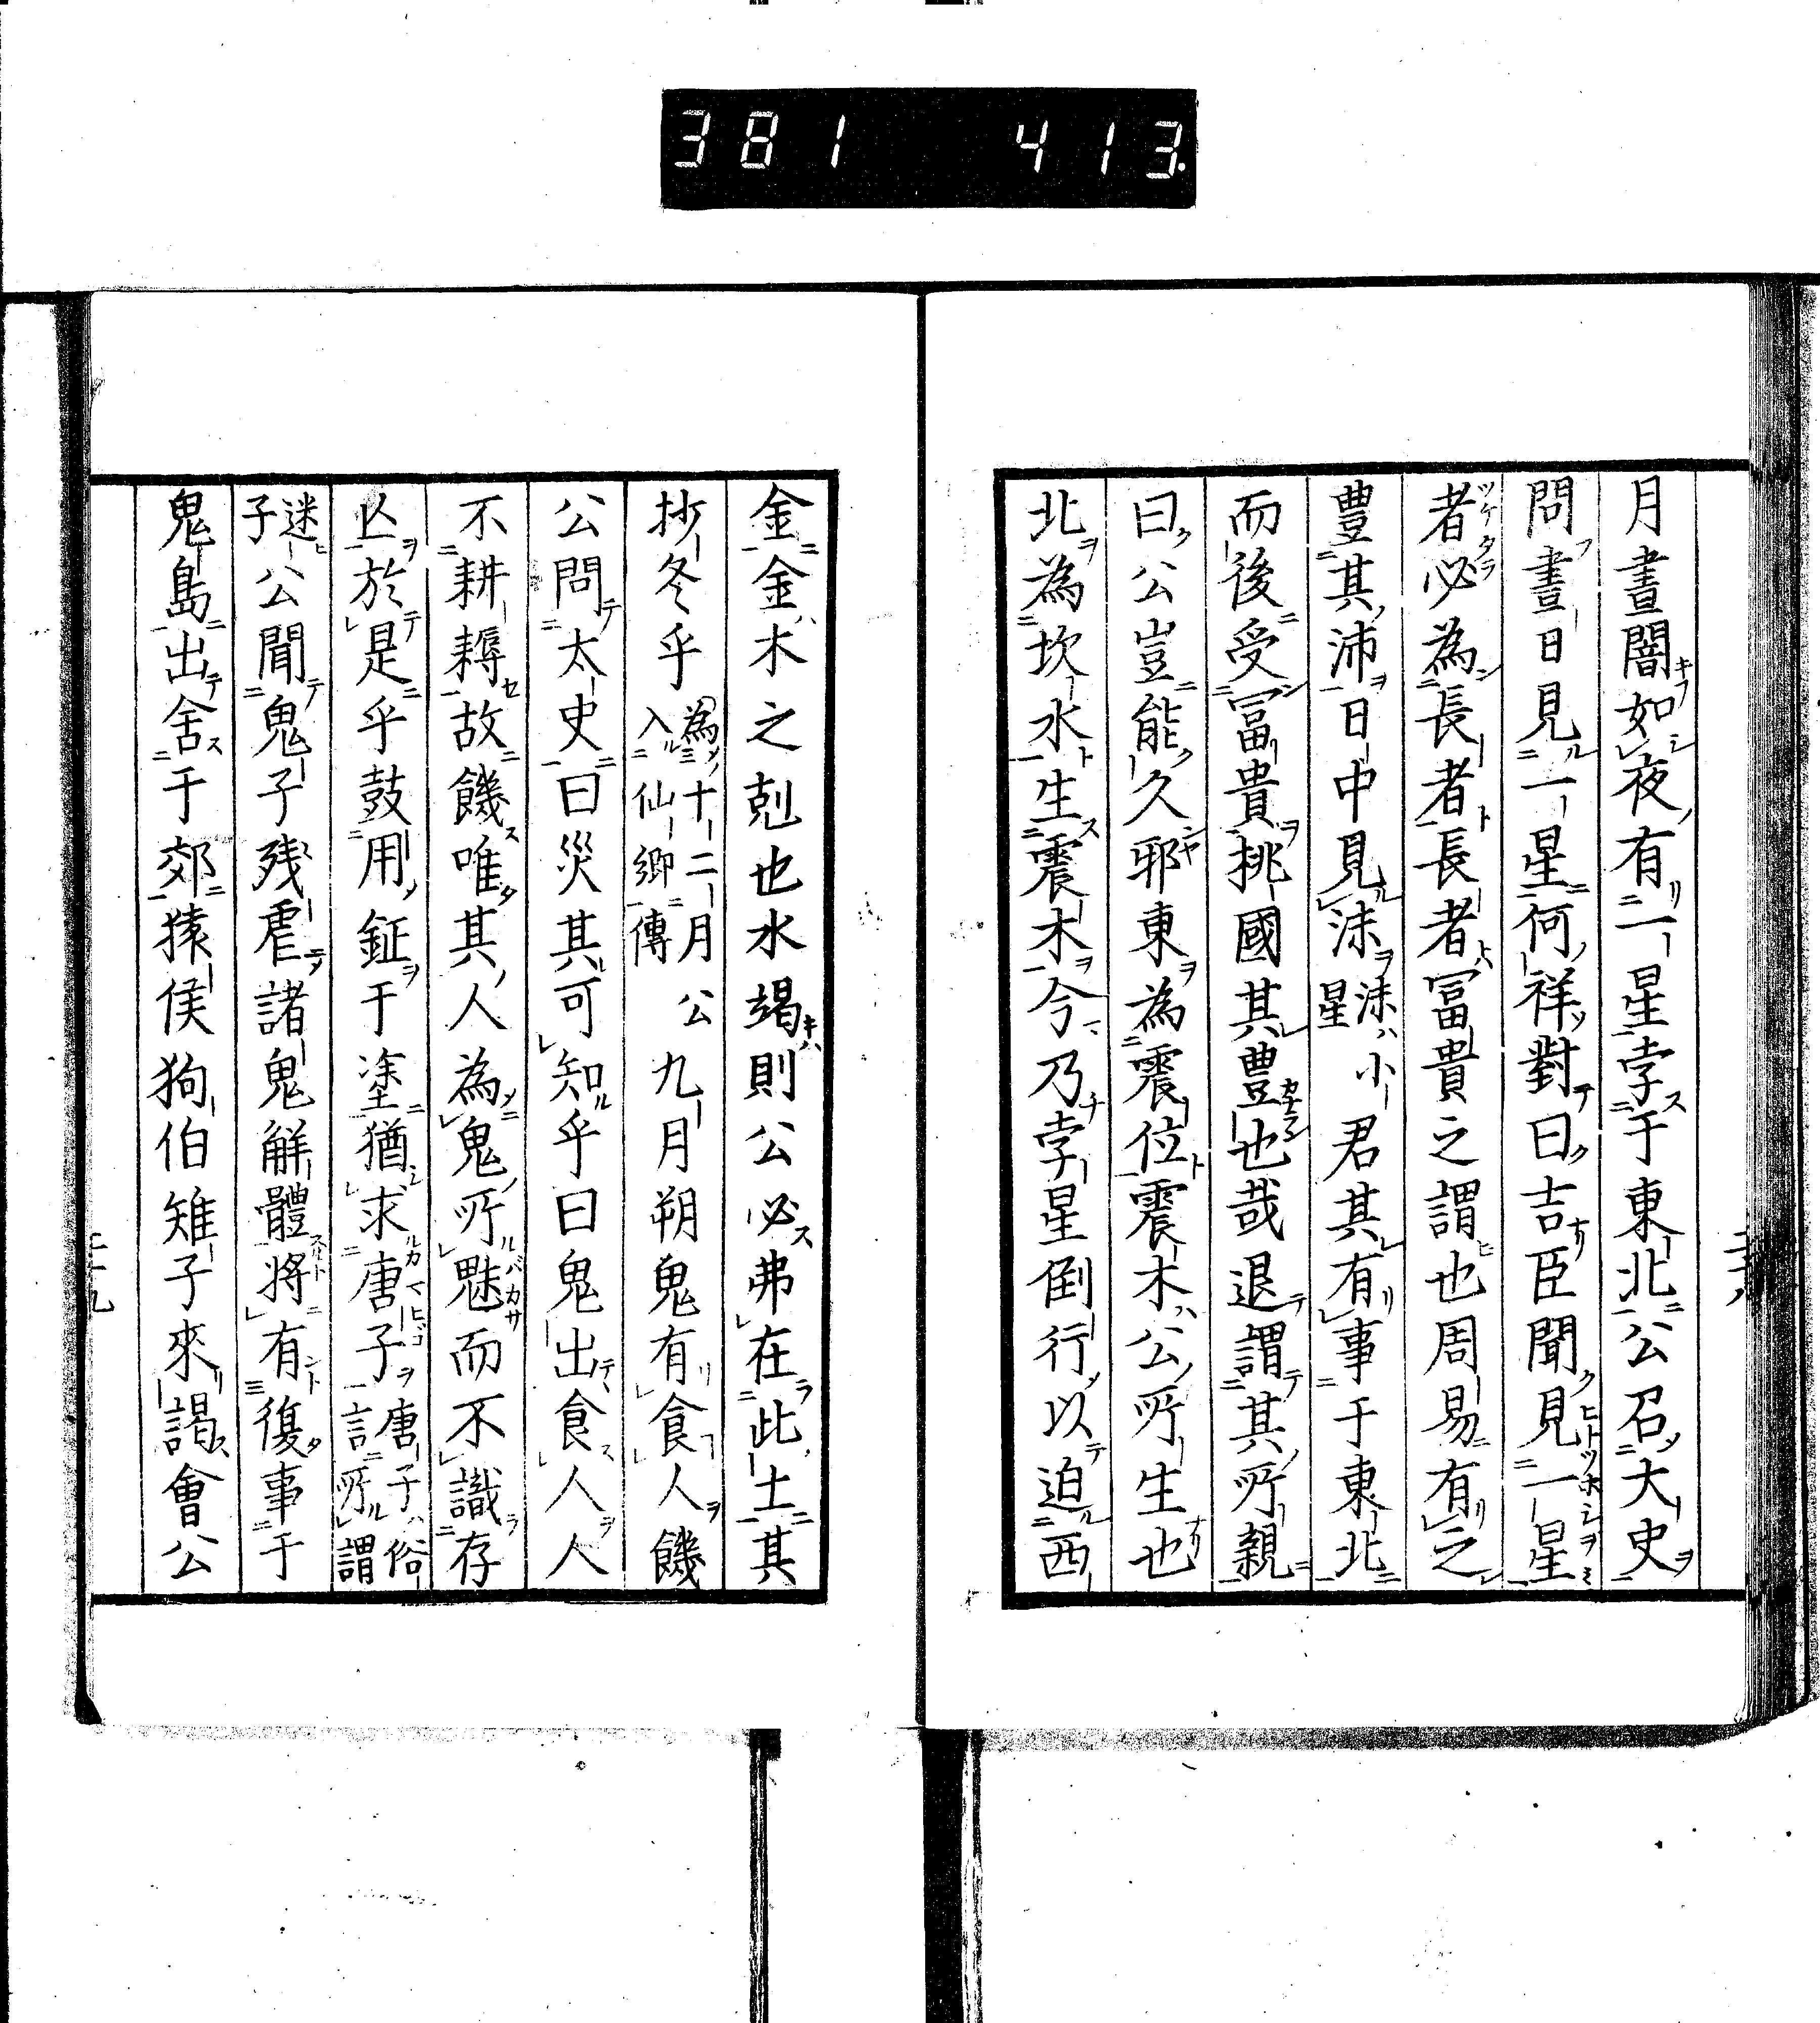 381 413
月晝闇如夜有二星孛于東北公召大史
問晝日見一星何祥對曰吉臣聞見一星
者必為長者長者冨貴之謂也周易有之
豊其沛日中見沬沬小星君其有事于東北
而後受冨貴挑國其豊也哉退謂其所親
曰公豈能久邪東為震位震木公所生也
北為坎水生震木今乃孛星倒行以迫西
金金木之剋也水竭則公必弗在此土其
抄冬乎為十二月入仙郷傳公九月朔鬼有食人饑
公問太史曰災其可知乎曰鬼出食人人
不耕耨故饑唯其人為鬼所魅而不識存
亾於是乎鼓用鉦于塗猶求唐子唐子俗言所謂
迷子公聞鬼子残虐諸鬼解體將有復事于
鬼島出舍于郊猿侯狗伯雉子來謁會公